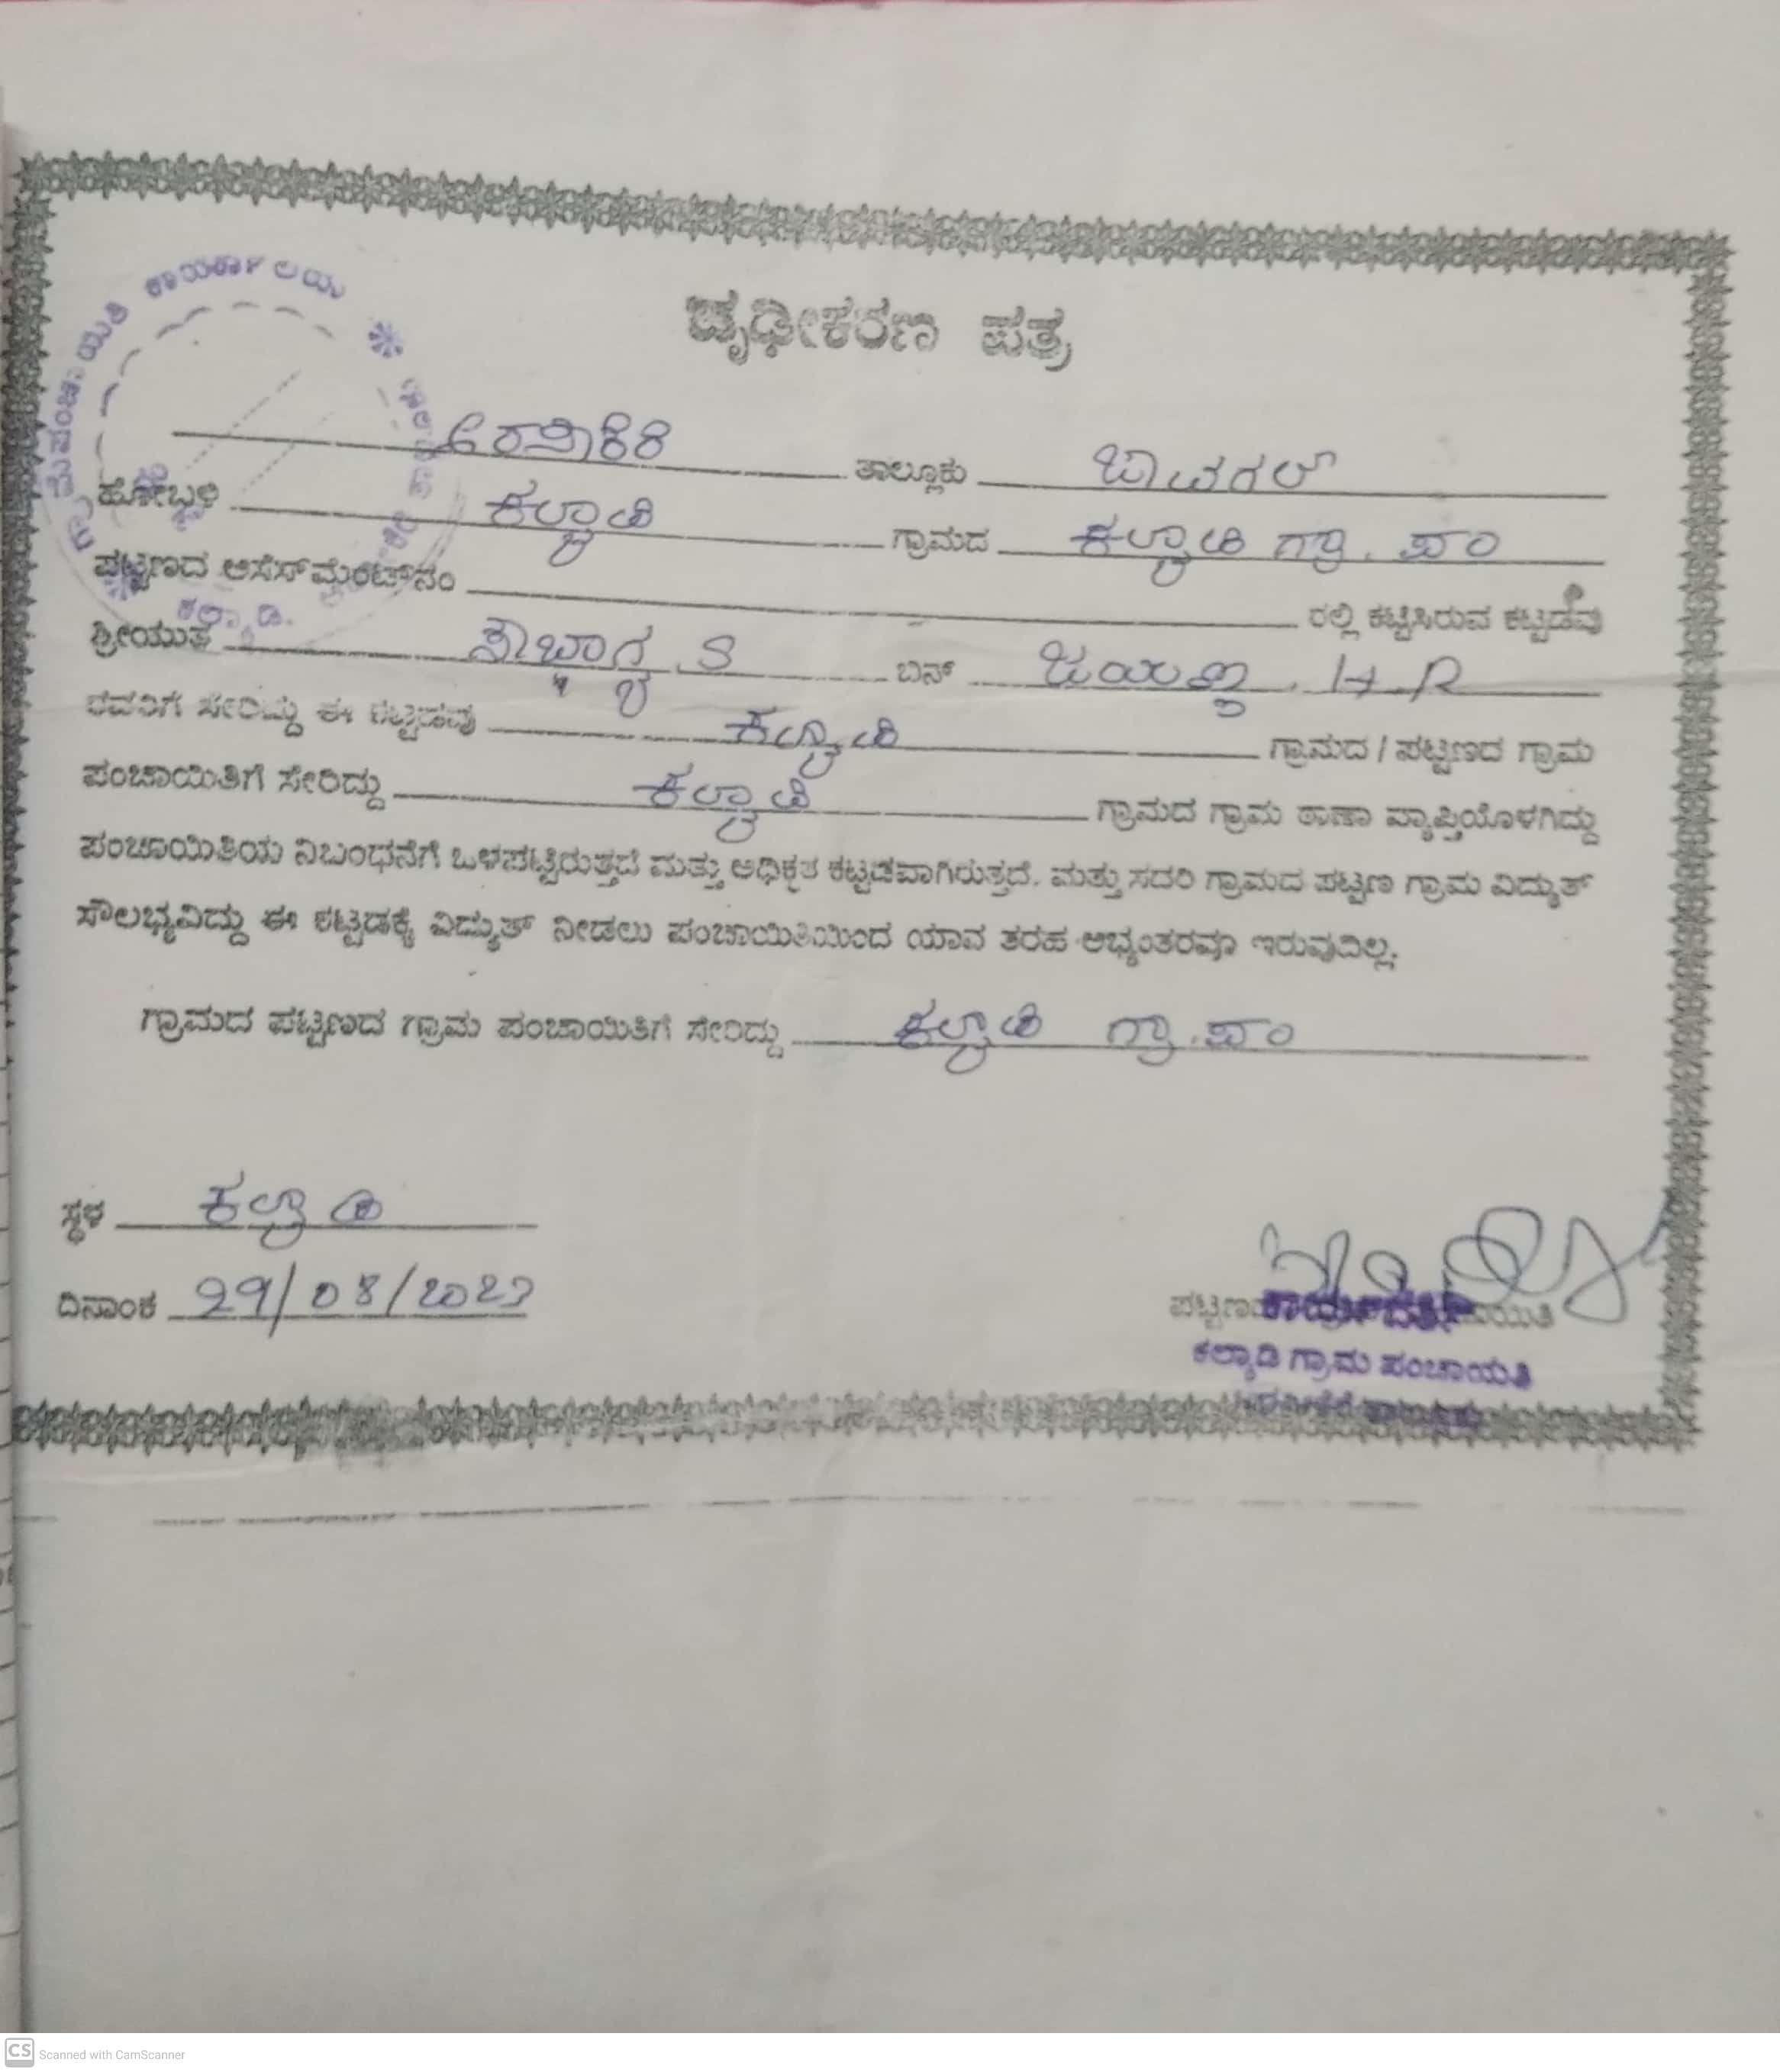 ದೃಢೀಕರಣ ಪತ್ರ
ಅರಸೀಕೆರೆ ತಾಲ್ಲೂಕು ಜಾವಗಲ್
ಹೋಬ್ಬಳಿ ಕಲ್ಯಾಡಿ ಗ್ರಾಮದ ಕಲ್ಯಾಡಿ ಗ್ರಾ. ಪಂ
ಪಟ್ಟಣದ ಅಸೆಸ್‌ಮೆಂಟ್‌ನಂ ರಲ್ಲಿ ಕಟ್ಟಿಸಿರುವ ಕಟ್ಟಡವು
ಶ್ರೀಯುತ ಸೌಭಾಗ್ಯ S ಬಿನ್ ಜಯಣ್ಣ . H.R
ರವರಿಗೆ ಸೇರಿದ್ದು ಈ ಕಟ್ಟಡವು ಕಲ್ಯಾಡಿ ಗ್ರಾಮದ / ಪಟ್ಟಣದ ಗ್ರಾಮ
ಪಂಚಾಯಿತಿಗೆ ಸೇರಿದ್ದು ಕಲ್ಯಾಡಿ ಗ್ರಾಮದ ಗ್ರಾಮ ಠಾಣಾ ವ್ಯಾಪ್ತಿಯೊಳಗಿದ್ದು
ಪಂಚಾಯಿತಿಯ ನಿಬಂಧನೆಗೆ ಒಳಪಟ್ಟಿರುತ್ತದೆ ಮತ್ತು ಅಧಿಕೃತ ಕಟ್ಟಡವಾಗಿರುತ್ತದೆ. ಮತ್ತು ಸದರಿ ಗ್ರಾಮದ ಪಟ್ಟಣ ಗ್ರಾಮ ವಿದ್ಯುತ್
ಸೌಲಭ್ಯವಿದ್ದು ಈ ಕಟ್ಟಡಕ್ಕೆ ವಿದ್ಯುತ್ ನೀಡಲು ಪಂಚಾಯಿತಿಯಿಂದ ಯಾವ ತರಹ ಅಭ್ಯಂತರವೂ ಇರುವುದಿಲ್ಲ.
ಗ್ರಾಮದ ಪಟ್ಟಣದ ಗ್ರಾಮ ಪಂಚಾಯಿತಿಗೆ ಸೇರಿದ್ದು ಕಲ್ಯಾಡಿ ಗ್ರಾ.ಪಂ
ಸ್ಥಳ ಕಲ್ಯಾಡಿ
ದಿನಾಂಕ 29/08/2023
ಕಲ್ಯಾಡಿ ಗ್ರಾಮ ಪಂಚಾಯತಿ
CS Scanned with CamScanner